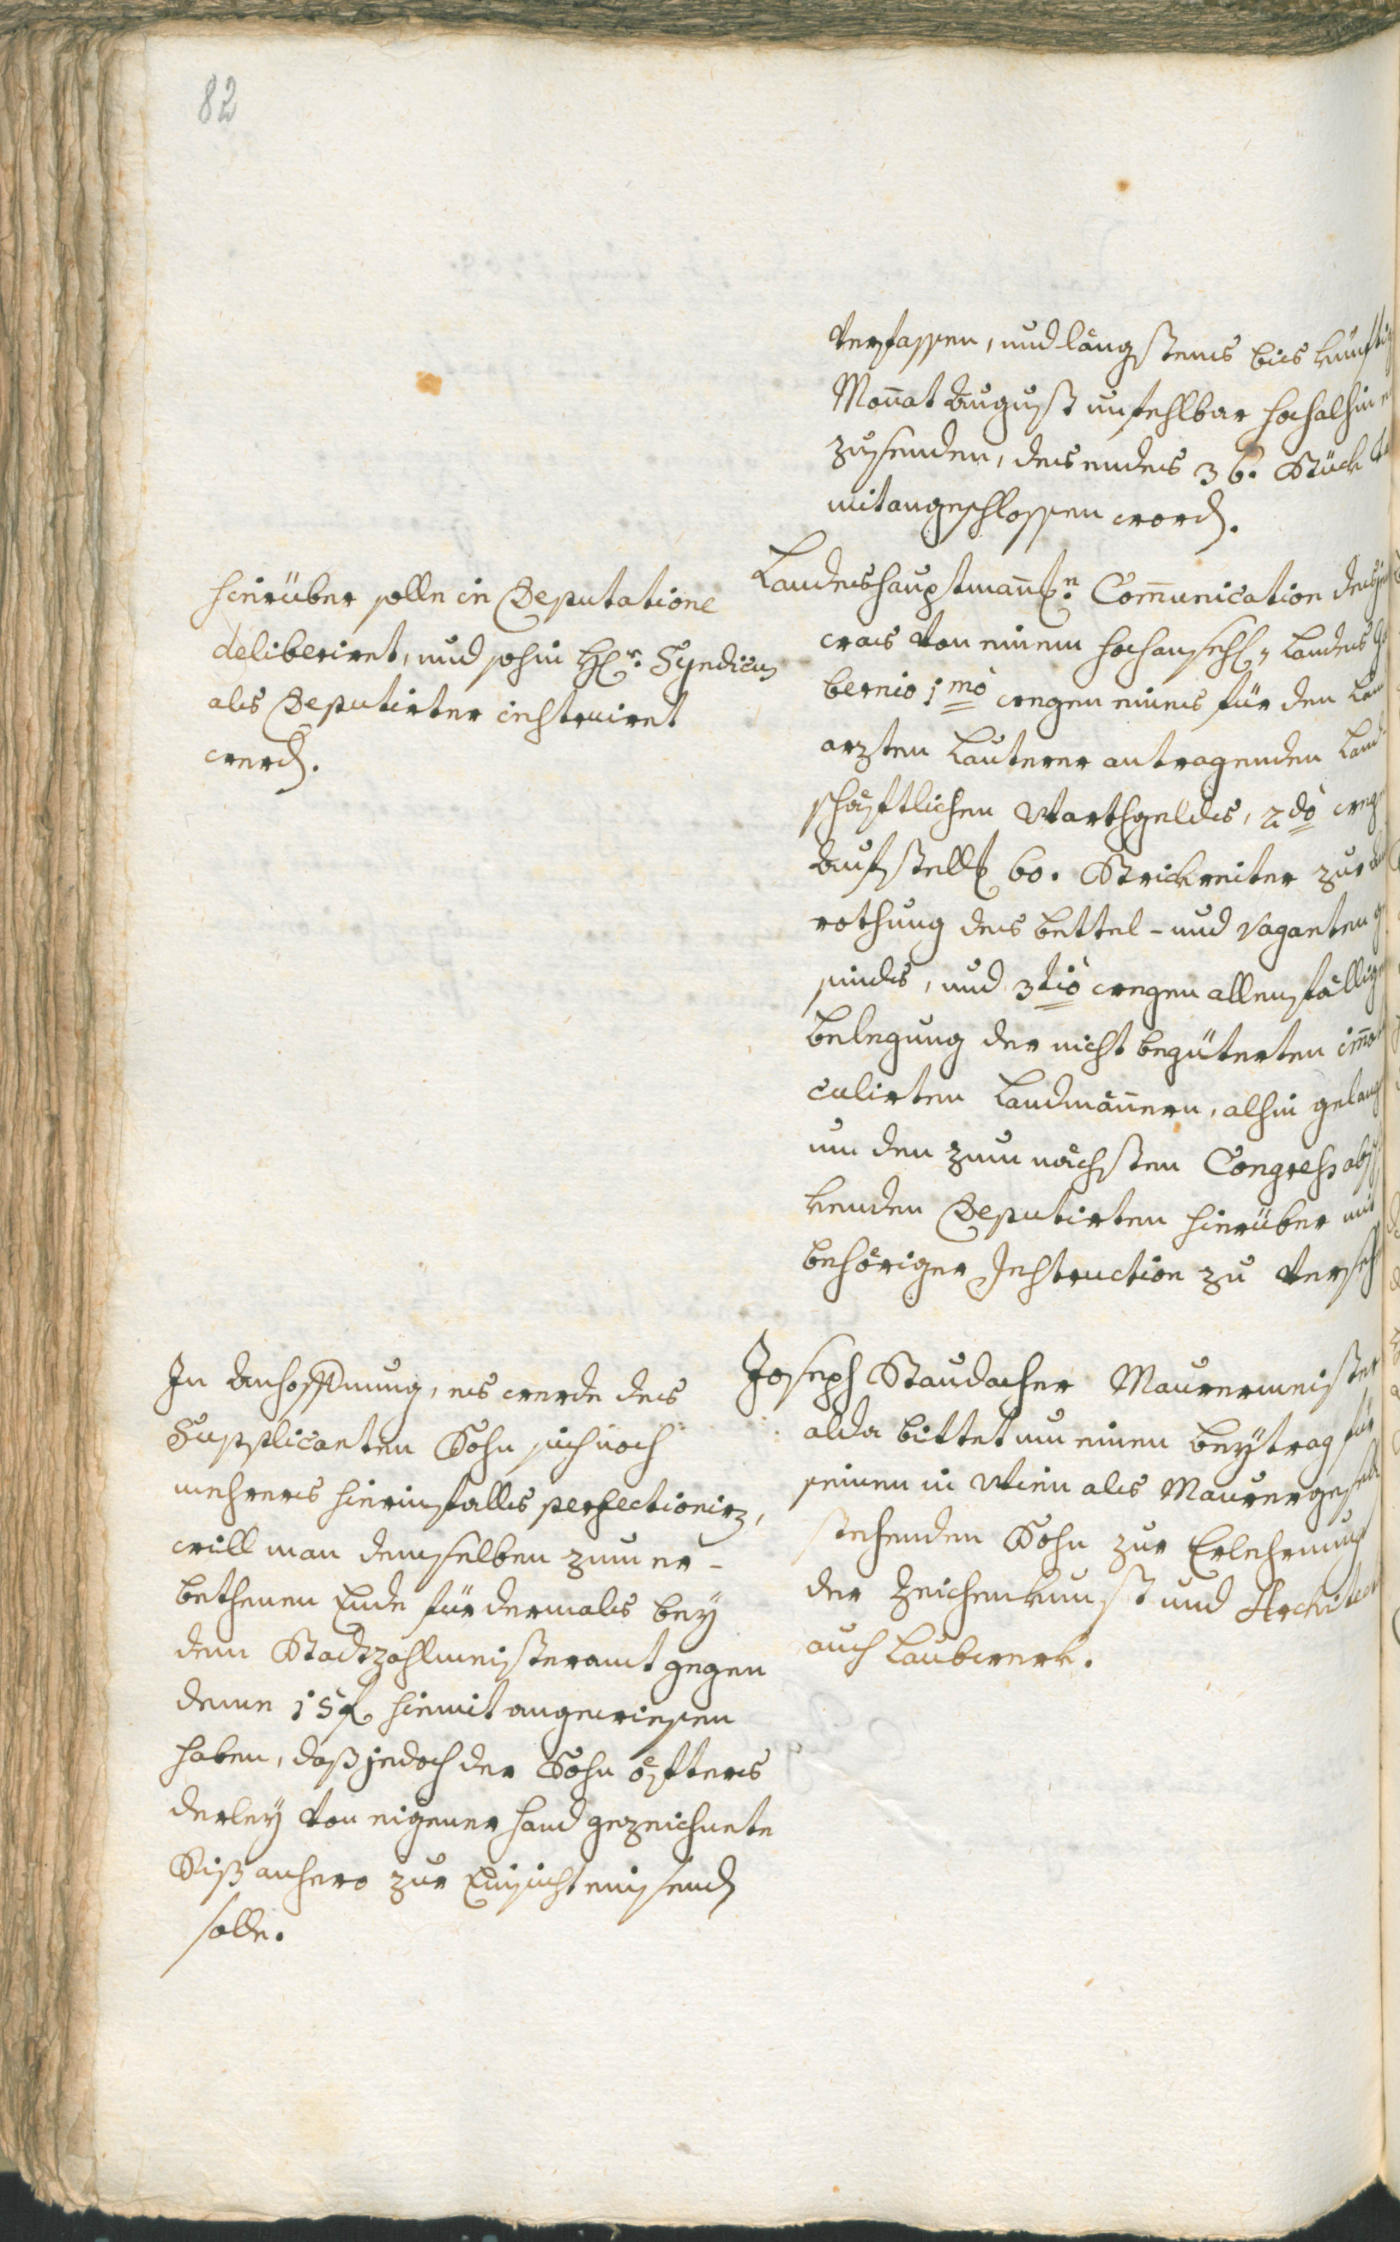 82
verfassen, und längstens bis künftig
Monat August unfehlbar hochalhin
zusenden, dessendes 36. Stück
mitangeschlossen word.
hierüber solle in Deputatione
deliberiret, und sohin H. Syndicus
als Deputirter instruiret
werd.
Landeshauptman. Communication
was von einem hochansehl. Landes
bernio 1mo wegen eines für den
arzten Lauterer antragenden Land
schäftlichen Warthgeldes, 2do
Aufstell 60. Strickreiter zur
rothung des bettel- und Vaganten
sindes, und 3tio wegen allenfällig
belegung der nicht begüterten
culirten Landmännern, alhin gelang
um den zum nächsten Congress
kenden Deputirten hierüber mit
behöriger Instruction zu verseh
In Anhoffnung, es werde des
Supplicanten Sohn sich noch
mehrers hierinfalls perfectionir,
will man demselben zum er-
bethenen Ende für dermals bey
dem Stadtzahlmeisteramt gegen
deme 15 f hiemit angewiesen
haben, daß jedoch der Sohn öfters
derley von eigener Hand gezeichnete
Riß anhero zur Einsicht einsend
solle.
Joseph Staudacher Maurermeister
alda bittet um einen beytrag für
seinen in Wien als Maurergesell
stehenden Sohn zur Erlehrnung
der Zeichenkunst und Architect
auch Laubwerk.